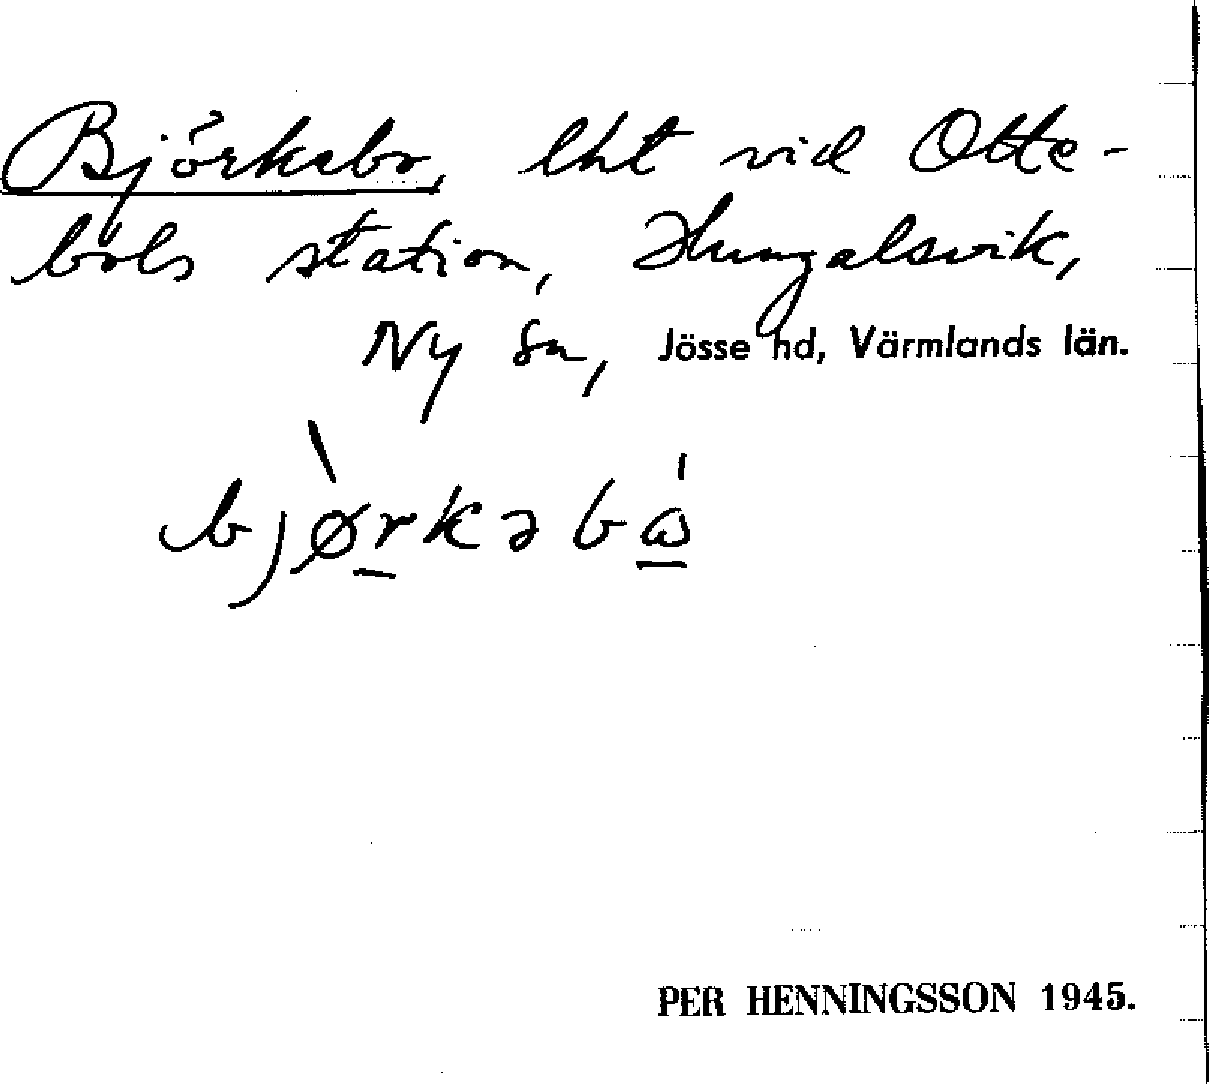 Björkebo, lht vid Otte-
bols station, Hungalsvik,
Ny sn, Jösse hd, Värmlands län.
bjø̀rkəbǻ
PER HENNINGSSON 1945.